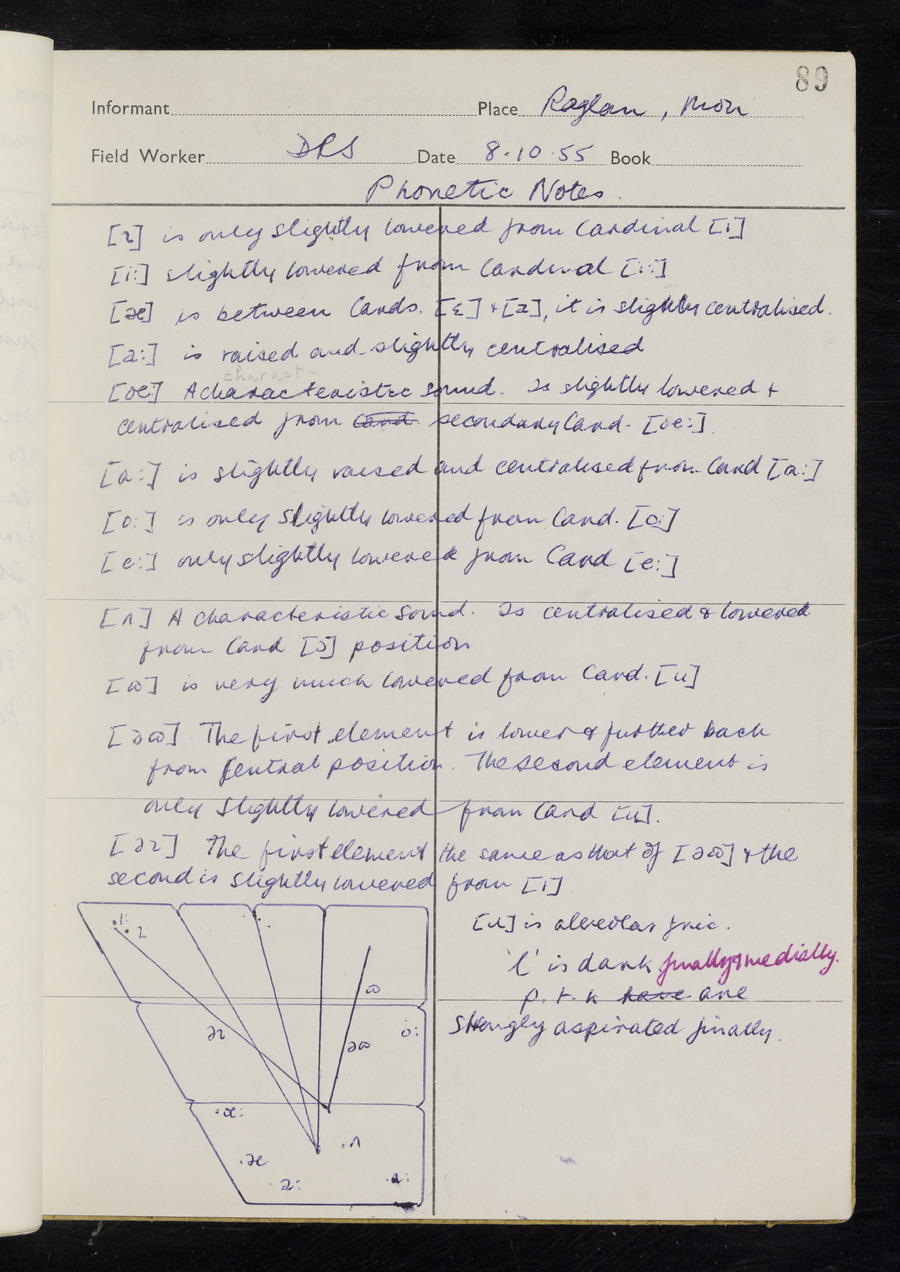 89
Informant Place Raglan, Mon
Field Worker DRS Date 8.10.55 Book
Phonetic Notes.
[ɪ] is only slightly lowered from Cardinal [i]
[i:] slightly lowered from Cardinal [i:]
[æ] is between Cards. [ɛ] + [a], it is slightly centralised.
[a:] is raised and slightly centralised
charact-
[œ:] A characteristic sound. Is slightly lowered +
centralised from Card secondary Card. [œ:].
[ɑ:] is slightly raised and centralised from Card [ɑ:]
[o:] is only slightly lowered from Card. [o:]
[e:] only slightly lowered from Card [e:]
[ʌ] A characteristic sound. Is centralised & lowered
from Card [ɔ] position
[ɷ] is very much lowered from Card. [u]
[əɷ] The first element is lower & further back
from Central position. The second element is
only slightly lowered from Card [u].
[əɪ] The first element the same as that of [əɷ] + the
second is slightly lowered from [i]
[ɹ] is alveolar fric.
'l' is dark finally & medially.
p. t. k have are
strongly aspirated finally.
i:
ɪ
ɷ
əɪ
əɷ
o:
œ:
æ
ʌ
a:
ɑ: